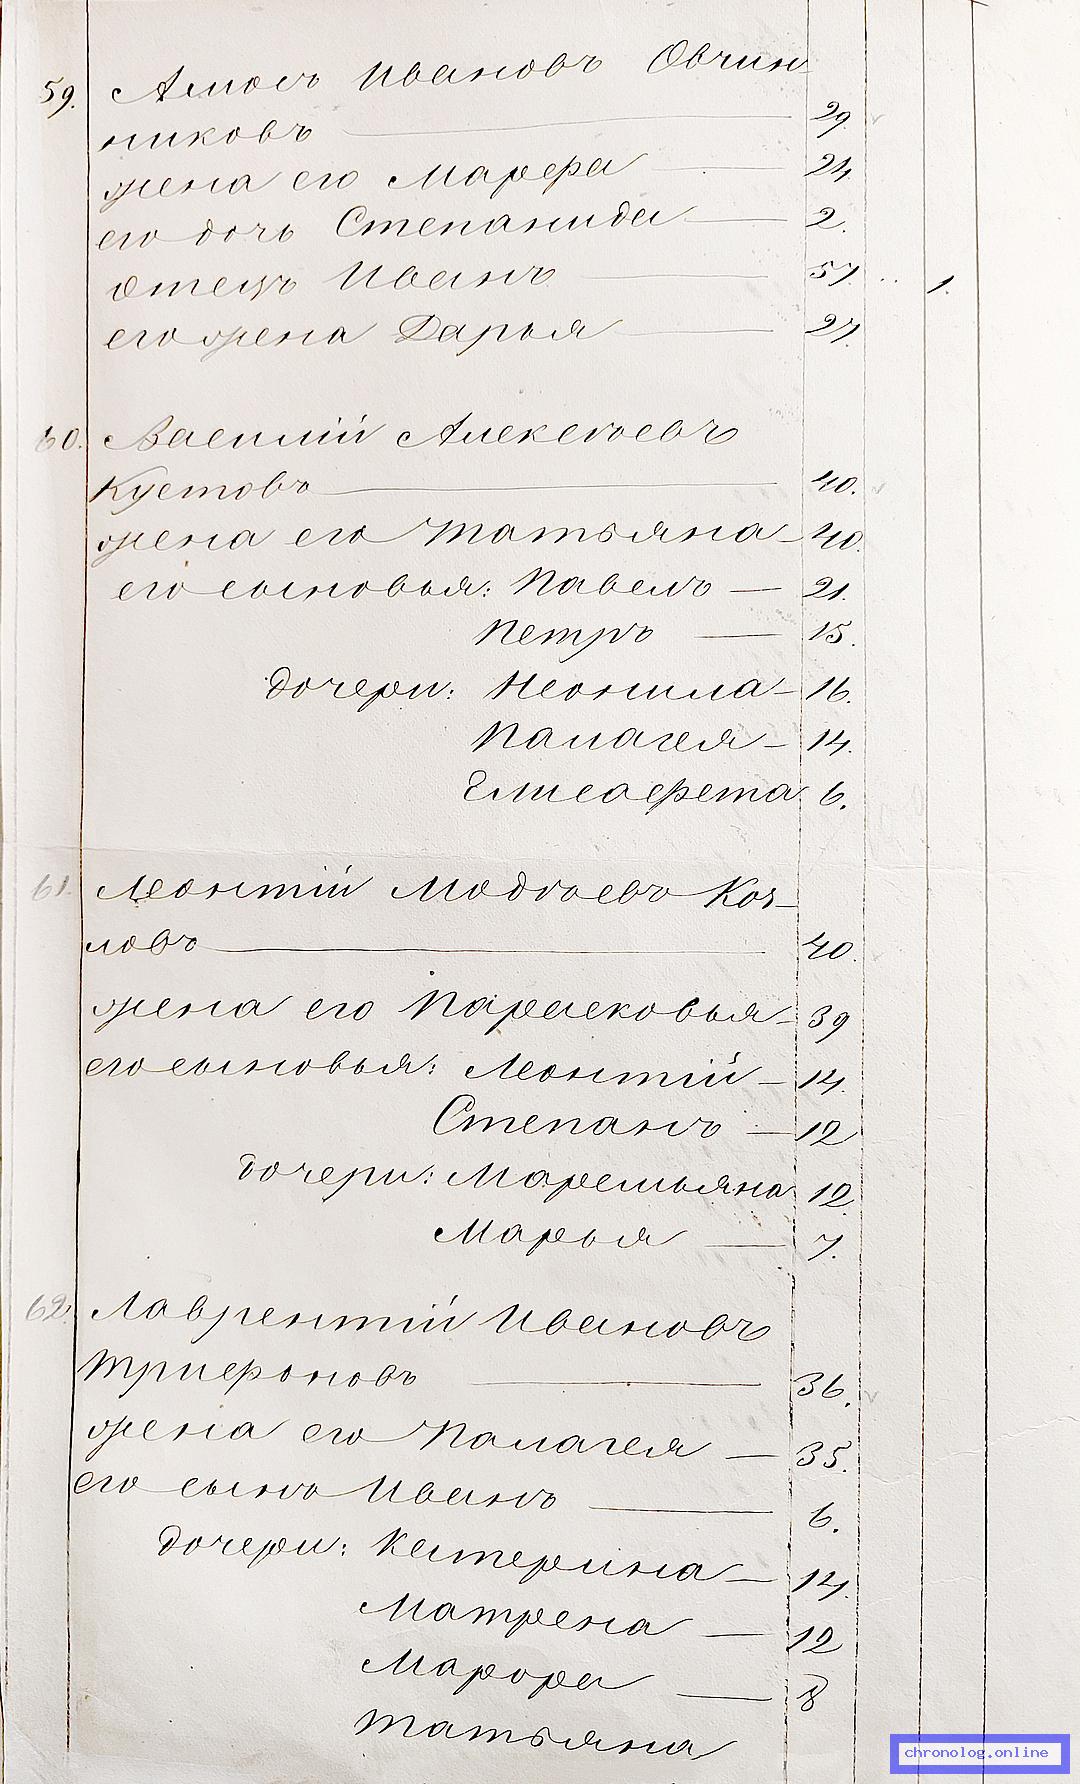 59. Амосъ Ивановъ Овчин
никовъ — 29.
жена его Марфа — 24.
его дочь Степанида — 2.
отецъ Иванъ — 57. .. 1.
его жена Дарья — 27.
60. Василій Алексѣевъ
Кустовъ — 40.
жена его Татьяна — 40.
его сыновья: Павелъ — 21.
Петръ — 15.
дочери: Неонила — 16.
Палагея — 14.
Елисафета 6.
61. Леонтій Авдѣевъ Коз-
ловъ — 40.
жена его Парасковья — 39
его сыновья: Леонтій — 14.
Степанъ — 12
дочери: Маремьяна 12.
Марья — 7.
62. Лаврентій Ивановъ
Трифоновъ — 36.
жена его Палагея — 35.
его сынъ Иванъ — 6.
дочери: Катерина — 14.
Матрена — 12
— 8
Татьяна
chronolog.online